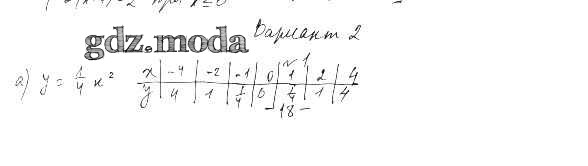 gdz.moda Вариант 2
№1
а) y = 1/4 x² x | -4 | -2 | -1 | 0 | 1 | 2 | 4
y | 4 | 1 | 1/4 | 0 | 1/4 | 1 | 4
- 18 -